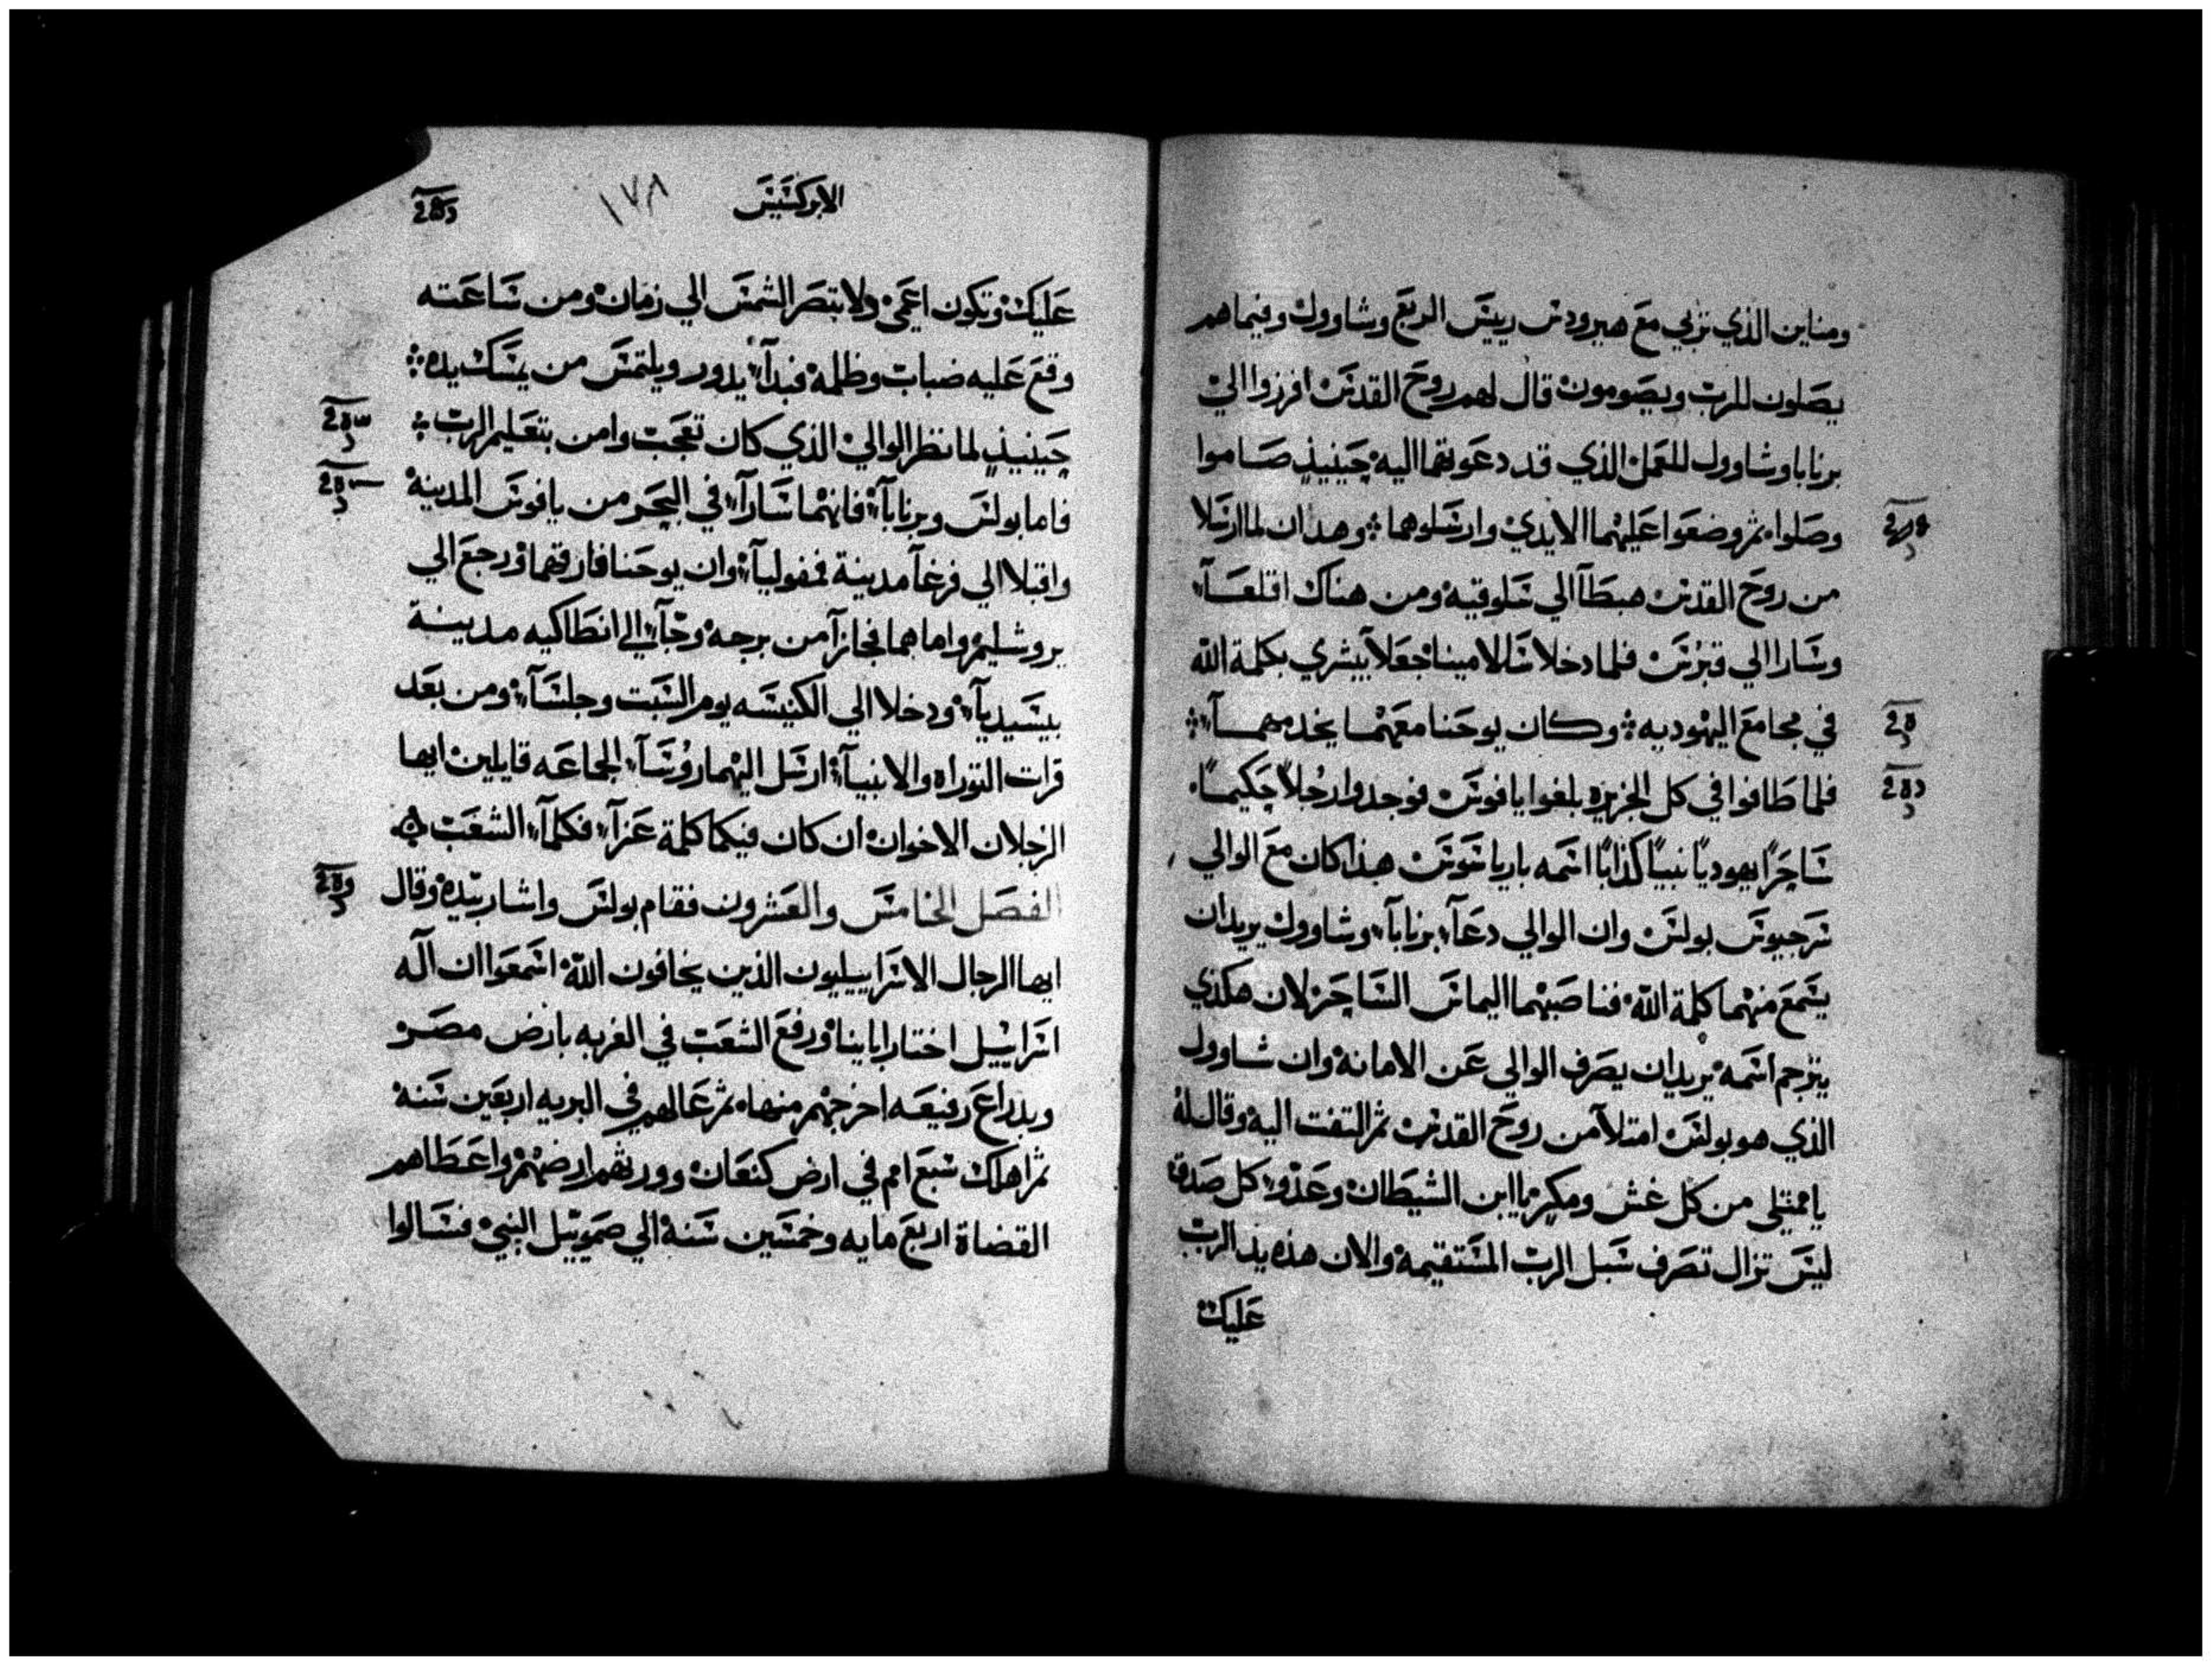 ومناين الذي تربي مع هيرودس رييس الربع وشاوول وفيماهم
يصلون للرب ويصومون قال لهم روح القدس افرزوا الي
برنابا وشاوول للعمل الذي قد دعوتهما اليه حينيذ صاموا
وصلوا ثم وضعوا عليهما الايدي وارسلوهما وهدان لما ارسلا
من روح القدس هبطا الي سلوقيه ومن هناك اقلعا
وسارا الي قبرس فلما دخلا سالامينا جعلا يبشري بكلمة الله
في مجامع اليهوديه وكان يوحنا معهما يخدمهما
فلما طافوا في كل الجزيره بلغوا يافوس فوجدوا رجلاً حكيماً
ساحرًا يهوديًا نبيًا كذابًا اسمه باريا سوس هذا كان مع الوالي
سرجيوس بولس وان الوالي دعا برنابا وشاوول يريد ان
يسمع منهما كلمة الله فناصبهما اليماس الساحر لان هكذي
يترجم اسمه يريد ان يصرف الوالي عن الامانة وان شاوول
الذي هو بولس امتلا من روح القدس ثم التفت اليه وقال له
يا ممتلي من كل غش ومكر يا ابن الشيطان وعدو كل صدق
ليس تزال تصرف سبل الرب المستقيمه والان هذه يد الرب
عليك
الابركسيس ١٧٨
عليك وتكون اعمي ولا تبصر الشمس الي زمان ومن ساعته
وقع عليه ضباب وظلمه فبدا يدور ويلتمس من يمسك يده
حينيذ لما نظر الوالي الذي كان تعجب وامن بتعليم الرب
فاما بولس وبرنابا فانهما سارا في البحر من يافوس المدينة
واقبلا الي فرغا مدينة فمفوليا وان يوحنا فارقهما ورجع الي
يروشليم واما هما فجازا من برجه وجا الي انطاكيه مدينة
بيسيديا ودخلا الي الكنيسه يوم السبت وجلسا ومن بعد
قرات التوراه والانبيا ارسل اليهما روسا الجماعه قايلين ايها
الرجلان الاخوان ان كان فيكما كلمة عزا فكلما الشعب
الفصل الخامس والعشرون فقام بولس واشار بيده وقال
ايها الرجال الاسراييليون الذين يخافون الله اسمعوا ان اله
اسراييل اختار اباينا ورفع الشعب في الغربه بارض مصر
وبدراع رفيعه اخرجهم منها ثم عالهم في البريه اربعين سنه
ثم اهلك سبع امم في ارض كنعان وورثهم ارضهم واعطاهم
القضاة اربع مايه وخمسين سنه الي صمويل النبي فسالوا